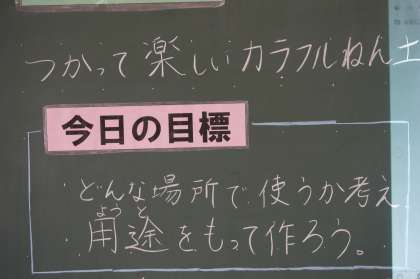 つかって楽しいカラフルねん土
今日の目標
どんな場所で使うか考え
用途をもって作ろう。
ようと